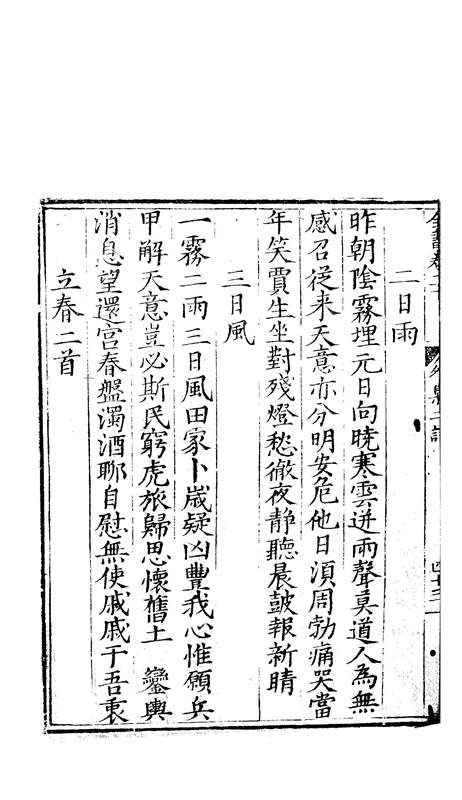 二日雨
昨朝陰霧埋元日向曉寒雲迸雨聲莫道人為無
感召從来天意亦分明安危他日須周勃痛哭當
年笑賈生坐對殘燈愁徹夜静聽晨皷報新晴
三日風
一霧二雨三日風田家卜歲疑凶豐我心惟願兵
甲解天意豈必斯民窮虎旅歸思懷舊土 鑾輿
消息望還宮春盤濁酒聊自慰無使戚戚干吾衷
立春二首